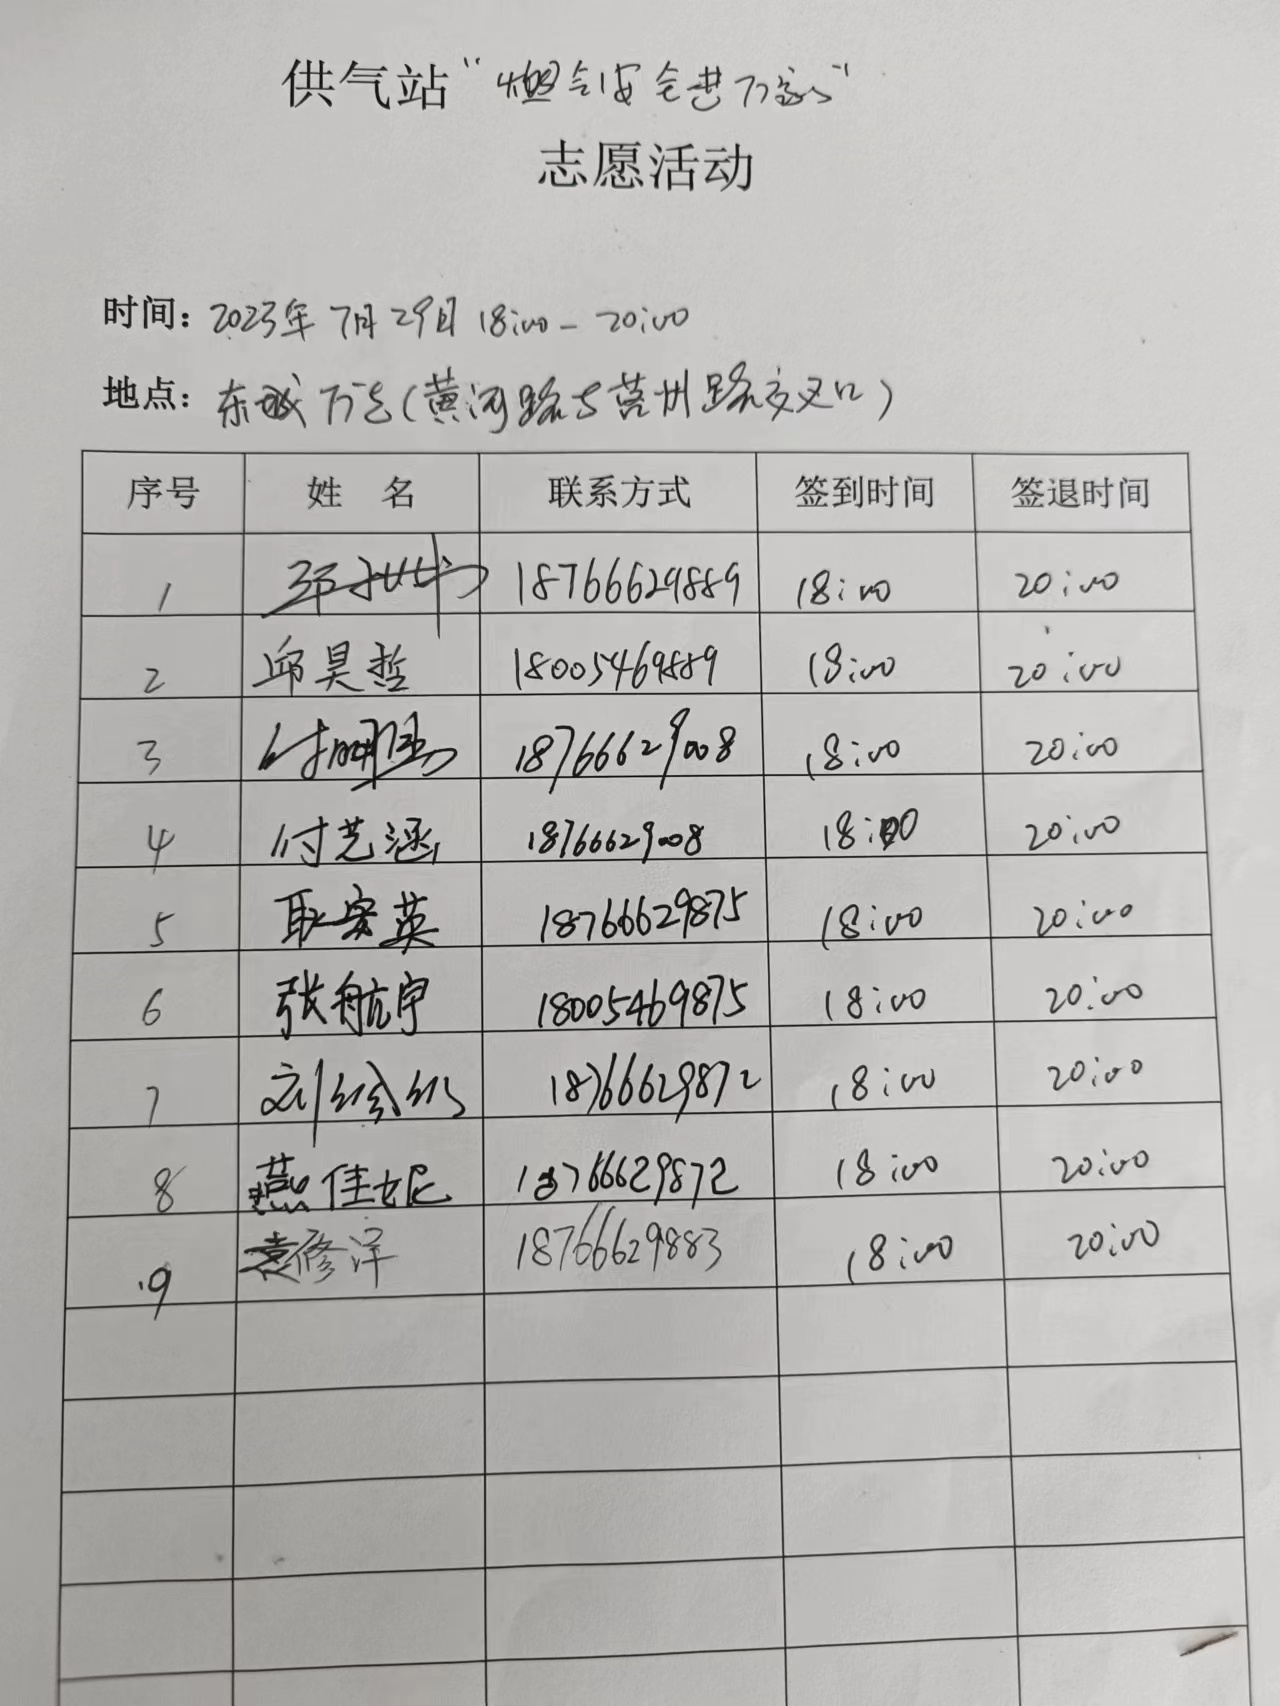 供气站“燃气安全进万家”
志愿活动
时间：2023年7月29日 18:00-20:00
地点：东城万达(黄河路与莒州路交叉口)
序号 姓名 联系方式 签到时间 签退时间
1 18766629889 18:00 20:00
2 邱昊哲 18005469889 18:00 20:00
3 付 18766629008 18:00 20:00
4 付艺涵 18766629008 18:00 20:00
5 耿安英 18766629875 18:00 20:00
6 张航宇 18005469875 18:00 20:00
7 刘 18766629872 18:00 20:00
8 燕佳妮 18766629872 18:00 20:00
9 袁修洋 18766629883 18:00 20:00